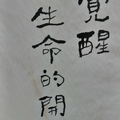 覺醒
生命的開